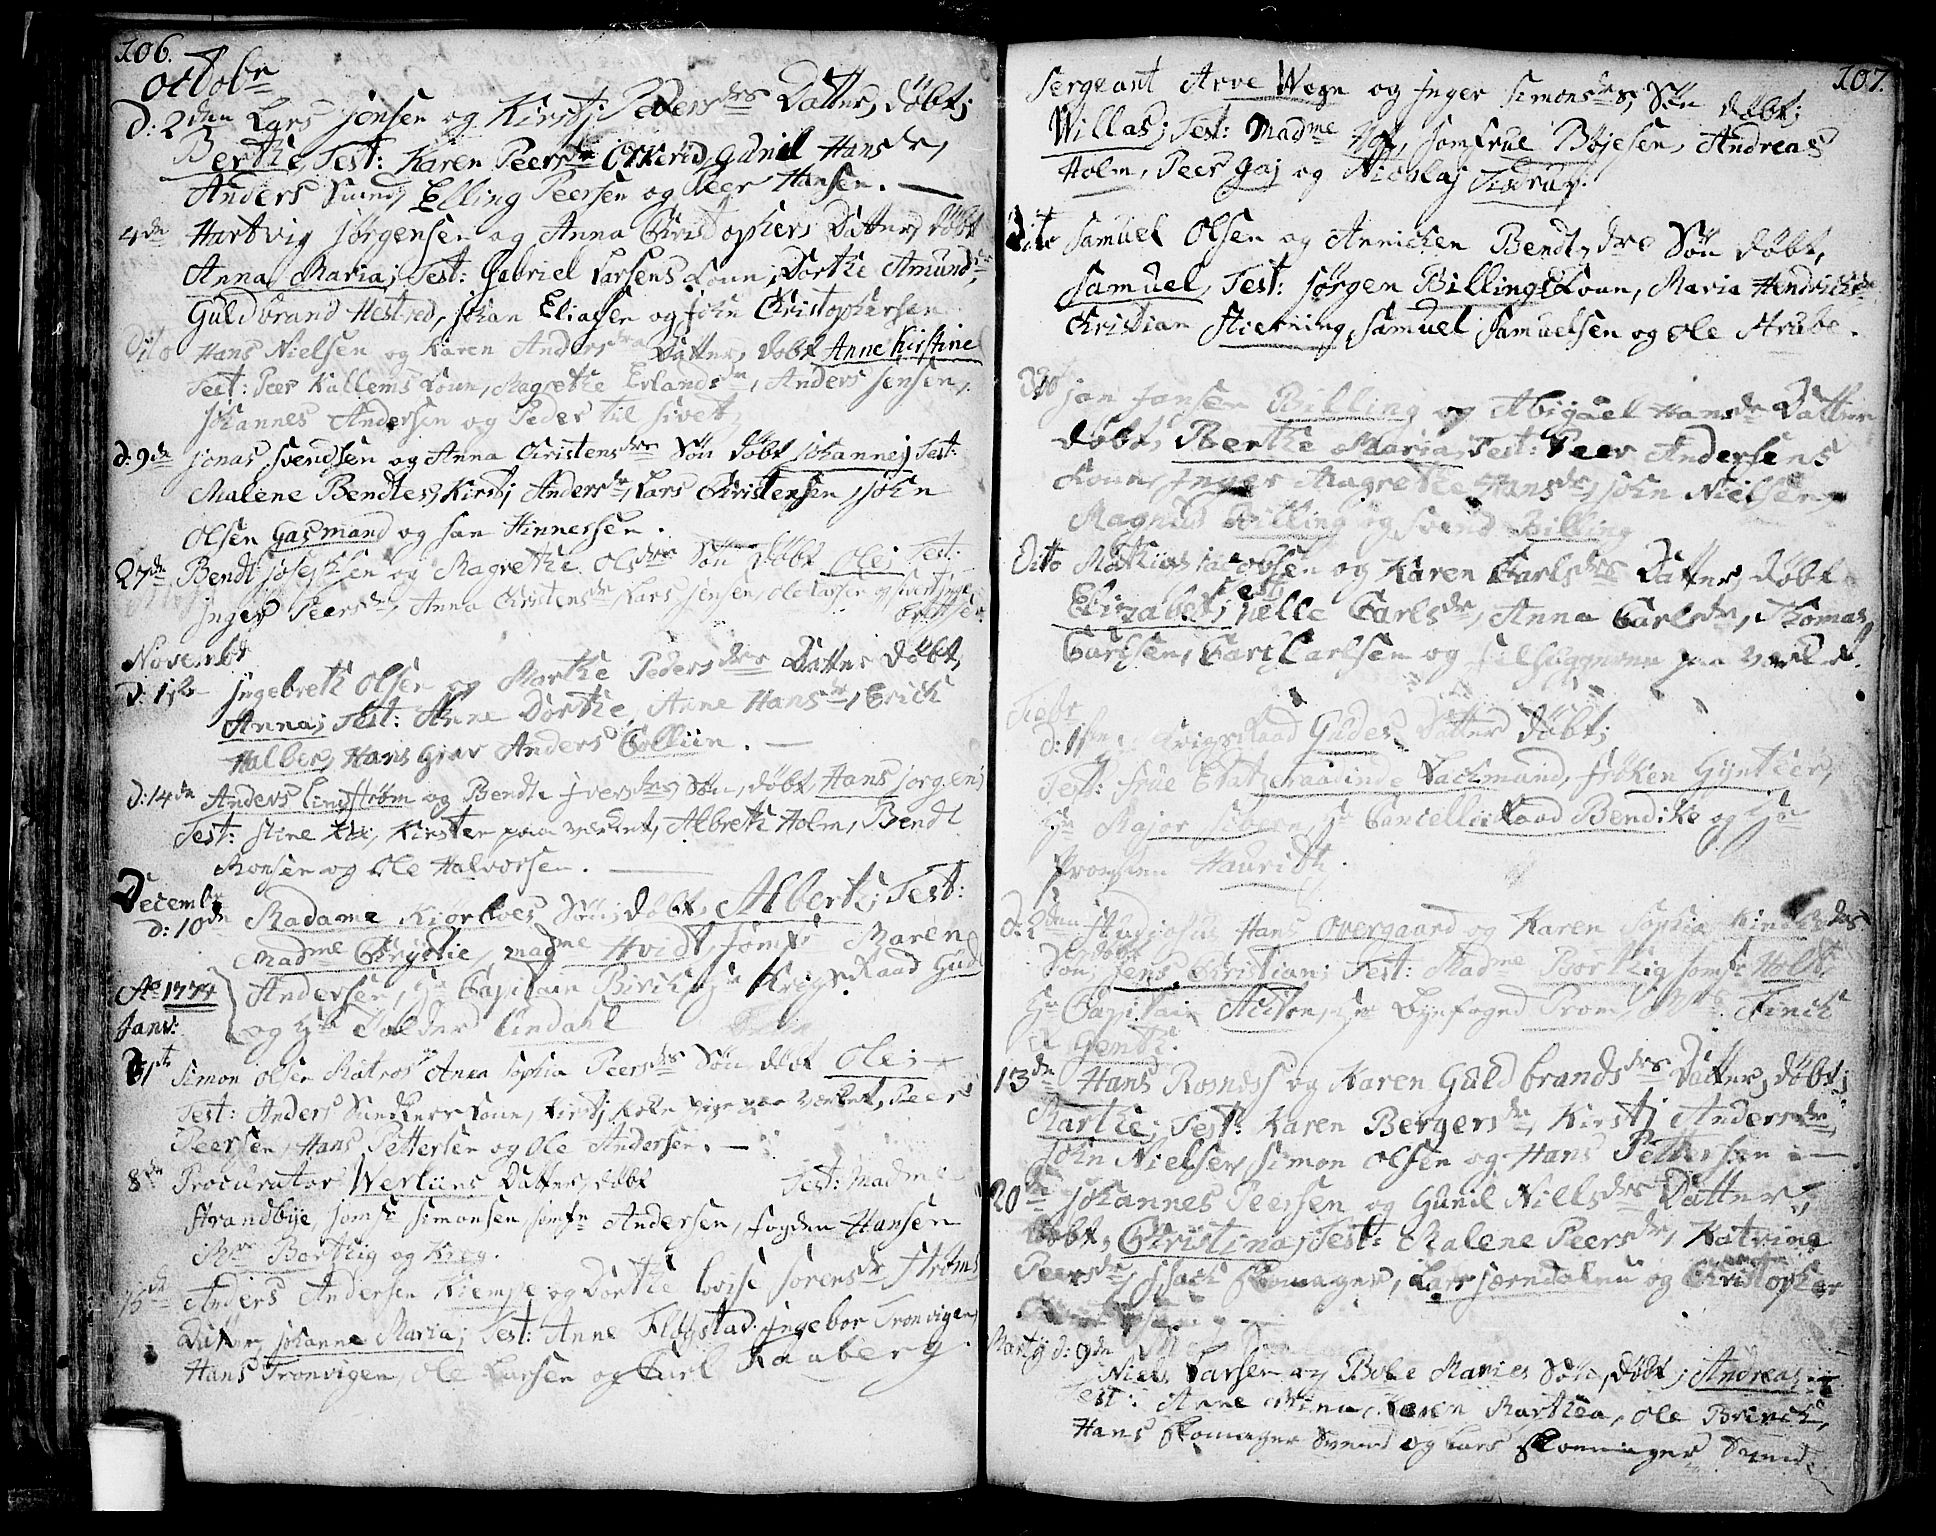 106.
Octobr
D: 2den Lars Jensen og Kirstj Peders drs Datter, døbt;
Berthe, Test: Karen Peersdr Gunil Hansdr,
Anders Sund, Elling Peersen og Peer Hansen. —
4de Hartvig Jørgensen og Anna Christophers Datter, døbt
Anna Maria; Test: Gabriel Larsens Kone; Dorthe Amundsdr
Guldbrand Hestved, Johan Eliasen og John Christophersen
Dito Hans Nielsen og Karen Andersdrs Datter, døbt Anne Kirstine
Test: Peer Kullems Koun, Magrethe Erlandsdr, Anders Jensen,
Johannes Andersen og Peder til Sivet,
d: 9de Jonas Svendsen og Anna Christensdrs Søn døbt Johannes; Test:
Malene Bendtes, Kirstj Andersdr, Lars Christensen, John
Olsen Gasmand og Jan Hinnessen.
27de Bendt Josephsen og Magrethe Olsdrs Søn døbt Ole; Test:
Inger Peersdr, Anna Christensdr, Lars Jensen, Ole Larsen og
Novembr
D: 1ste Ingebreth Olsen og Marthe Pedersdrs Datter døbt,
Anna; Test: Anne Dorthe, Anne Hansdr, Erick
Halber, Hans Giær Anders Colliin. —
d: 14de Anders Lindstrøm og Bendte Iversdrs Søn, døbt Hans Jørgen;
Test: Stine Kirsten paa verket, Albreth Holm, Bendt
Monsen og Ole Halvorsen. —
Decembr
d: 10de Madame Kiørboes Søn, døbt, Alberth; Test:
Madme Chrystie, Madme Hvidt, Jomfr Maren
Andersen, Hr Capitain Birch, Hr Krigs Raad Gude
Ao 1774 og Hr Tolder Lindahl
Janv:
1ste Simon Olsen Matros Anna Sophia Peersdrs Søn døbt Ole; —
Test: Anders Sundkers Koun, Kirstj pige paa Verket, Peer
Peersen, Hans Pettersen og Ole Andersen. —
8de Procurator Werlüns Datter, døbt Test: Madme
Strandbye, Jomfr Simonsen, Jomfr Andersen, Fogden Hansen
Mr Borthig og Krog.
Anders Andersen Kiempe og Dorthe Lovise Sørensdr Strøms
Datter, Johanne Maria; Test: Anne Fløystad, Ingebor Tronvigen,
Hans Tronvigen, Ole Larsen og Carl Raaberg.
107.
Sergeant Arve Wegn og Inger Simonsdrs, Søn døbt;
Willas; Test: Madme Jomfrue Bøjesen, Andreas
Holm, Peer Gaj og Nicolaj Tisdrup.
Dito Samuel Olsen og Annichen Bendtsdrs Søn døbt,
Samuel, Test: Jørgen Billings Koun, Maria Hendrichsdr
Christian Stierning, Samuel Samuelsen og Ole Strube.
Dito Jan Jansen Billing og Abigael Hansdr Datter
døbt, Berthe Maria, Test: Peer Andersens
Koun, Inger Magrethe Hansdr, John Nielsen,
Magnus Billing og Svend Billing
Dito Mathias Jacobsen og Karen Carlsdrs Datter, døbt
Elizabet; Test: Pelle Carlsdr, Anna Carlsdr, Thomas
Carlsen, Carl Carlsen og paa Verket.
Febr
d: 1ste Krigs Raad Gudes Datter døbt;
Test: Frue Etatzraadinde Lachmand, Frøken Gynther,
Hr Major Sibern, Hr Cancellie Raad Bendike og Hr
Provsten Hauridtz.
d: 2den Studiosus Hans Overgaard og Karen Sophia
Søn; døbt Jens Christian; Test: Madme Borthig, Jomfr Holst,
Hr Capitain Allson, Hr Byefoged Prom, Mr Finck
13de Hans Rosness og Karen Guldbrandsdrs Datter, døbt;
Marthe; Test: Karen Bergersdr, Kirstj Andersdr,
John Nielsen, Simon Olsen og Hans Pettersen —
20de Johannes Peersen og Gunil Nillsdrs Datter,
døbt, Christina; Test: Malene Peersdr, Katrine
Peersdr, Isach Skomager, Lars Jærndalen og Christopher
Martij d: 9de
Niels Larsen og Bole Maries Søn, døbt; Andreas;
Test: Anne Stina, Karen Marthea, Ole Brinck,
Hans Skomager Svend og Lars Skomager Svend.